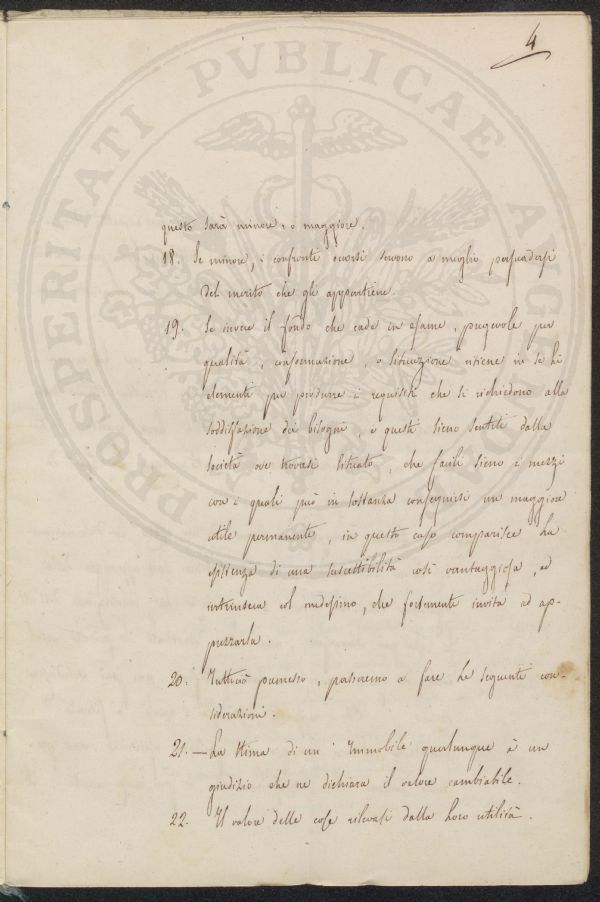 4
PROSPERITATI PVBLICAE AVGENDAE
questo sarà minore, o maggiore.
18. Se minore, i confronti occorsi servono a meglio persuadersi
del merito che gli appartiene.
19. Se invece il fondo che cade in esame, pregevole per
qualità, conformazione, o situazione ritiene in se li
elementi per produrre i requisiti che si richiedono alla
soddisfazione dei bisogni, e questi sieno sentiti dalla
società ove trovasi situato, che facili sieno i mezzi
con i quali può in sostanza conseguirsi un maggiore
utile permanente, in questo caso comparisce la
esistenza di una suscettibilità così vantaggiosa, ed
intrinseca col medesimo, che fortemente invita ad ap-
prezzarla.
20. Tutto ciò premesso, passeremo a fare le seguenti con-
siderazioni.
21. — La stima di un Immobile qualunque è un
giudizio che ne dichiara il valore cambiabile.
22. Il valore delle cose rilevasi dalla loro utilità.